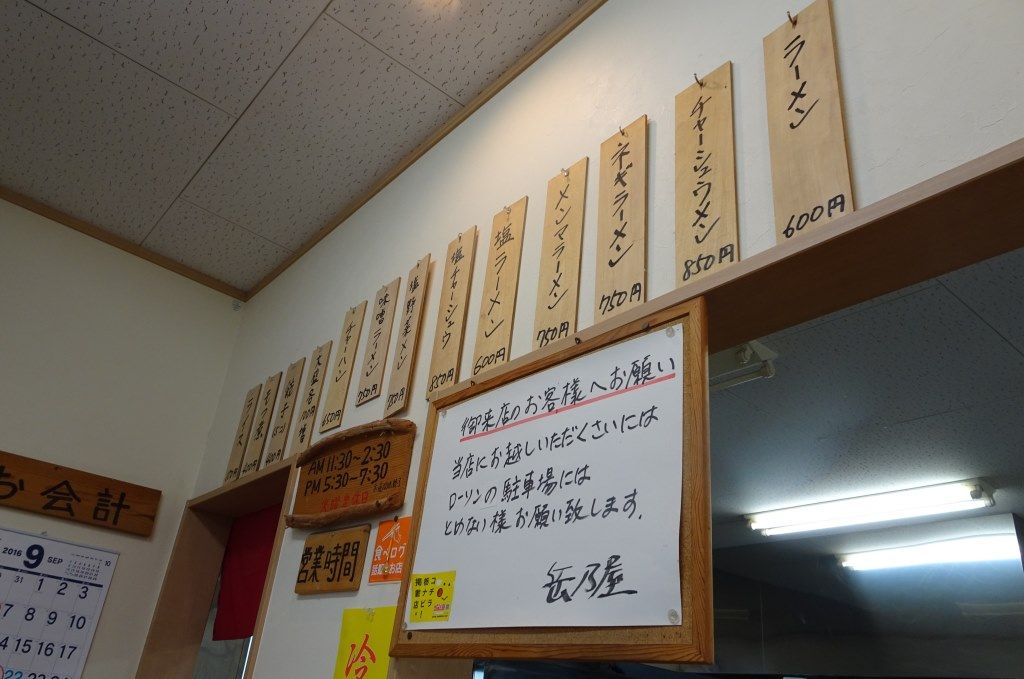 ラーメン 600円
チャーシュウメン 850円
ネギラーメン 750円
メンマラーメン 750円
塩ラーメン 600円
塩チャーシュウ 850円
塩野菜メン
味噌ラーメン 750円
チャーハン 650円
大盛各
餃子
もつ煮
ライス
御来店のお客様へお願い
当店にお越しいただくさいには
ローソンの駐車場には
とめない様お願い致します。
岳乃屋
AM 11:30~2:30
PM 5:30~7:30
営業時間
食べログ
話題のお店
掲載店
冷
お会計
2016 9 SEP
1 2 3
7 8 9 10
14 15 16 17
22